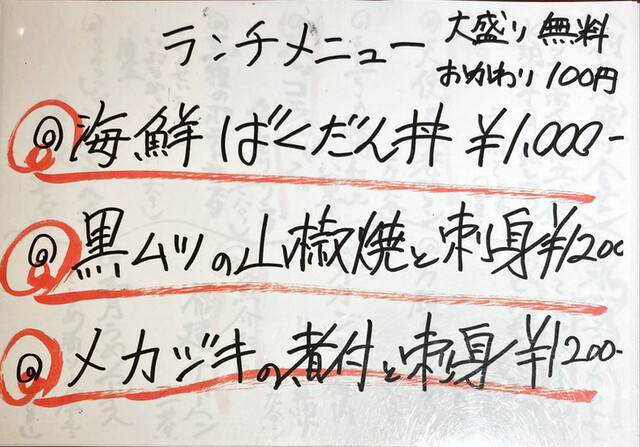 ランチメニュー
大盛り 無料
おかわり 100円
◎海鮮ばくだん丼 ¥1.000-
◎黒ムツの山椒焼と刺身¥1200
◎メカジキの煮付と刺身¥1200-